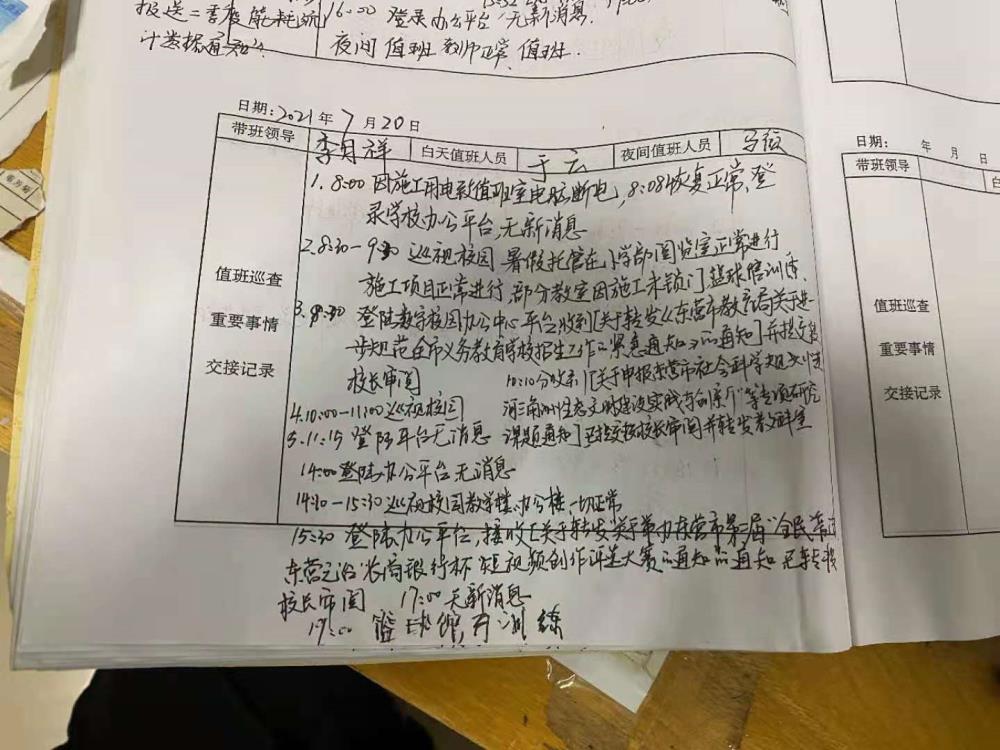 报送二季度能耗统
计数据通知".
16:00 登录办公平台,无新消息.
夜间值班 到师正常 值班.
日期:2021年7月20日
带班领导 李月祥 白天值班人员 于云 夜间值班人员 马
1.8:00 因施工用电致值班室电脑断电,8:08恢复正常,登
录学校办公平台,无新消息
2.8:30-9:30 巡视校园 暑假托管在小学部图览室正常进行
施工项目正常进行,部分教室因施工未锁门 篮球培训
3. 9:30 登陆数字校园办公中心平台收到[关于转发《东营市教育局关于进一
步规范全市义务教育学校招生工作的紧急通知》的通知]并提交
校长审阅 10:10分收到[关于申报东营市社会科学规划
河三角洲生态文明建设实践与创新"等专项研究
4.10:00-11:00巡视校园
5.11:15 登陆平台无消息 课题通知]已提交校长审阅并转发教研室
14:00登陆办公平台无消息
14:10-15:30巡视校园教学楼、办公楼一切正常
15:30 登陆办公平台,接收[关于转发关于举办东营市第二届"全民
东营之治"农商银行杯"短视频创作评选大赛的通知的通知 已转
校长审阅 17:00 无新消息
19:00 篮球馆,有训练
值班巡查
重要事情
交接记录
日期: 年 月 日
带班领导 白
值班巡查
重要事情
交接记录